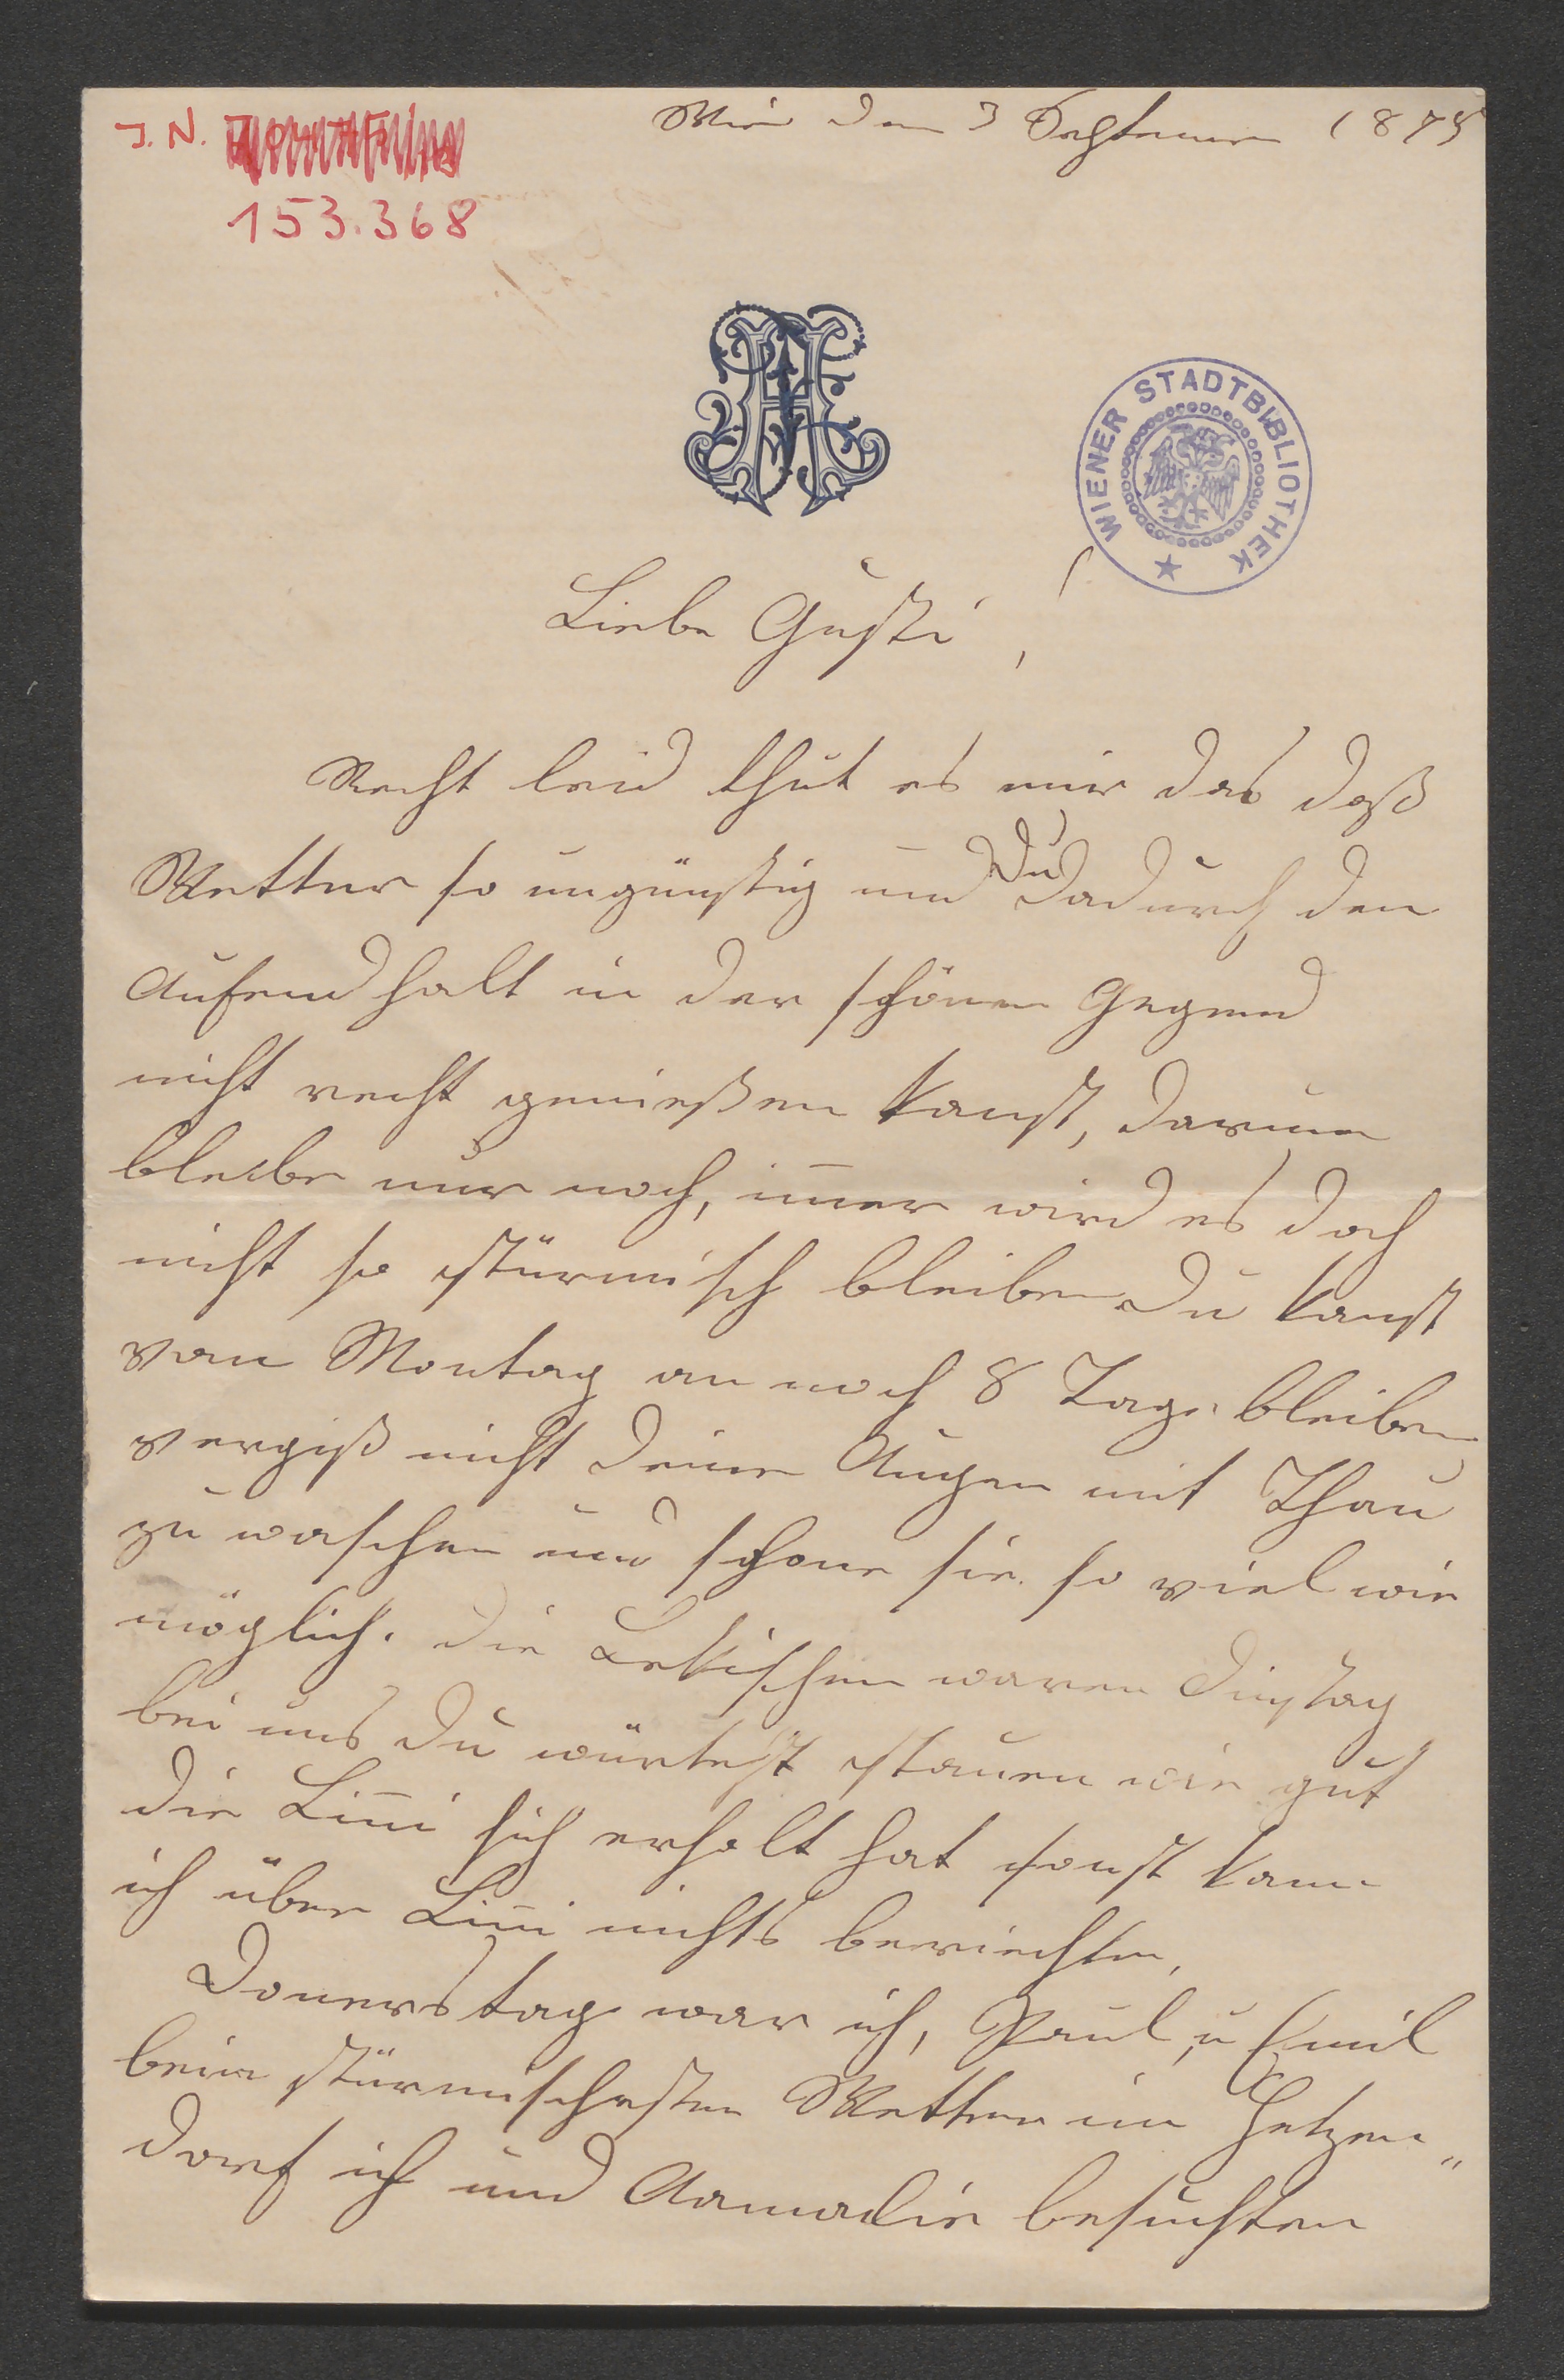 J. N.
153.368
Wien den 3 September 1875
WIENER STADTBIBLIOTHEK
Liebe Gusti,
Recht leid thut es mir das daß
Wetter so ungünstig und Du dadurch den
Aufendhalt in der schönen Gegend
nicht recht genießen kanst, darum
bleibe nur noch, im̅er wird es doch
nicht so stürmisch bleiben Du kanst
von Montag an noch 8 Tage bleiben
vergiß nicht Deine Augen mit Thau
zu waschen und schone sie so viel wie
möglich. die waren Dinstag
bei uns Du würtest stauen wie gut
die Lin̅i sich erholt hat sonst kann
ich über Lin̅i nichts beriechten,
Donerstag war ich, Paul, u Emil
beim stürmischesten Wetter im Hetzen„
dorf ich und Aamalie besuchten